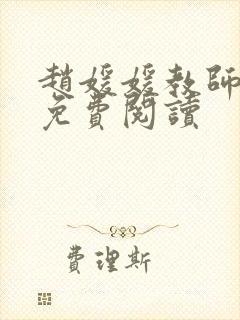 趙媛媛教師
免費閱讀
費理斯